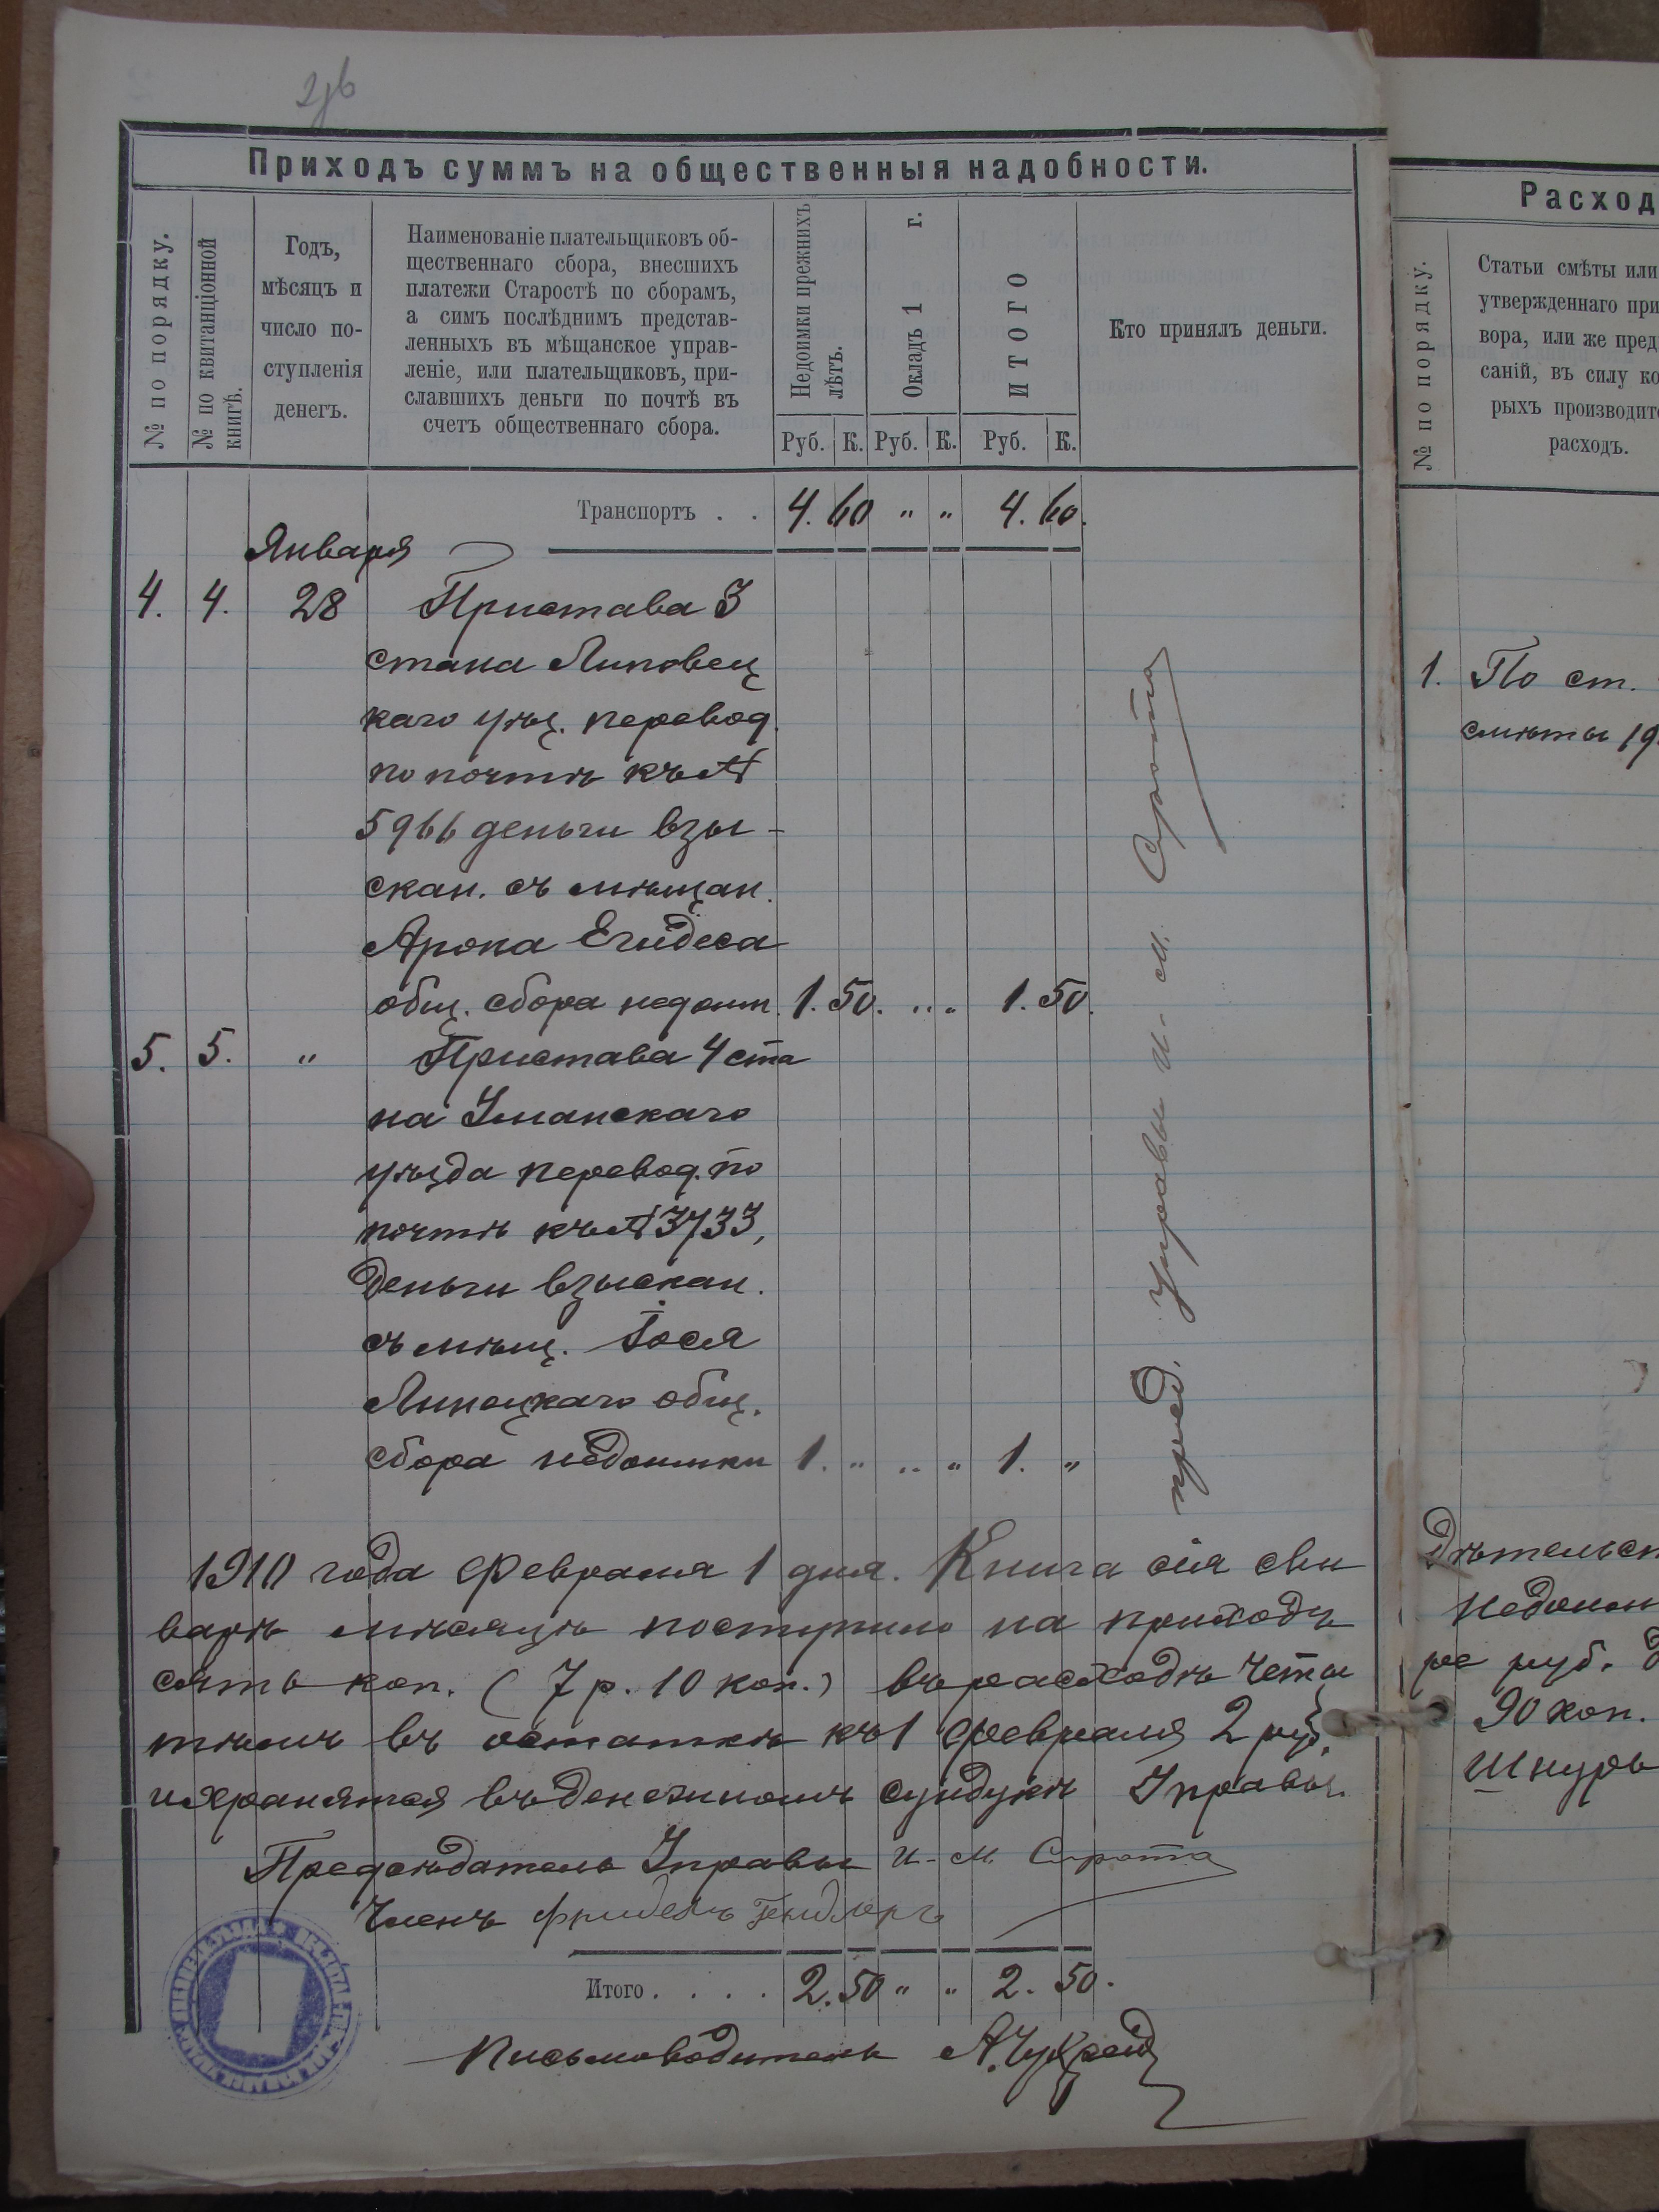 Приходъ суммъ на общественныя надобности.
№ по порядку.
№ по квитанціонной книгѣ.
Годъ,
мѣсяцъ и
число по-
ступленія
денегъ.
Наименованіе плательщиковъ об-
щественнаго сбора, внесшихъ
платежи Старостѣ по сборамъ,
а симъ послѣднимъ представ-
ленныхъ въ мѣщанское управ-
леніе, или плательщиковъ, при-
славшихъ деньги по почтѣ въ
счетъ общественнаго сбора.
Недоимки прежнихъ
лѣтъ.
Окладъ 1 г.
ИТОГО
Кто принялъ деньги.
Руб. К. Руб. К. Руб. К.
Транспортъ . . 4. 60 " " 4. 60.
Января
4. 4. 28 Пристава 3
стана Липовец
каго уѣз. перевод.
по почтѣ къ №
5966 деньги взы-
скан. съ мѣщан.
Арона Егидеса
общ. сбора недоим. 1. 50. " " 1. 50.
5. 5. " Пристава 4 ста
на Уманскаго
уѣзда перевод. по
почтѣ къ № 3733,
деньги взыскан.
съ мѣщ. Іося
Линецкаго общ.
сбора недоимки 1. " " " 1. "
пред. Управы И-М. Сирота
1910 года Февраля 1 дня. Книга сія сви
варѣ мѣсяцѣ поступило на приходъ
сять коп. (7 р. 10 коп.) въ расходѣ четы
тѣмъ въ остаткѣ къ 1 февраля 2 руб.
и хранятся въ денежномъ сундукѣ Управы.
Предсѣдатель Управы И-М. Сирота
Членъ Фридель Гендлеръ
Итого . . . . 2. 50 " " 2. 50.
Письмоводитель
Расход
№ по порядку.
Статьи смѣты или
утвержденнаго при
вора, или же пред
саній, въ силу ко
рыхъ производит
расходъ.
1. По ст.
смѣты 19
дѣтельст
недоим
ре руб.
90 коп.
Шнуръ